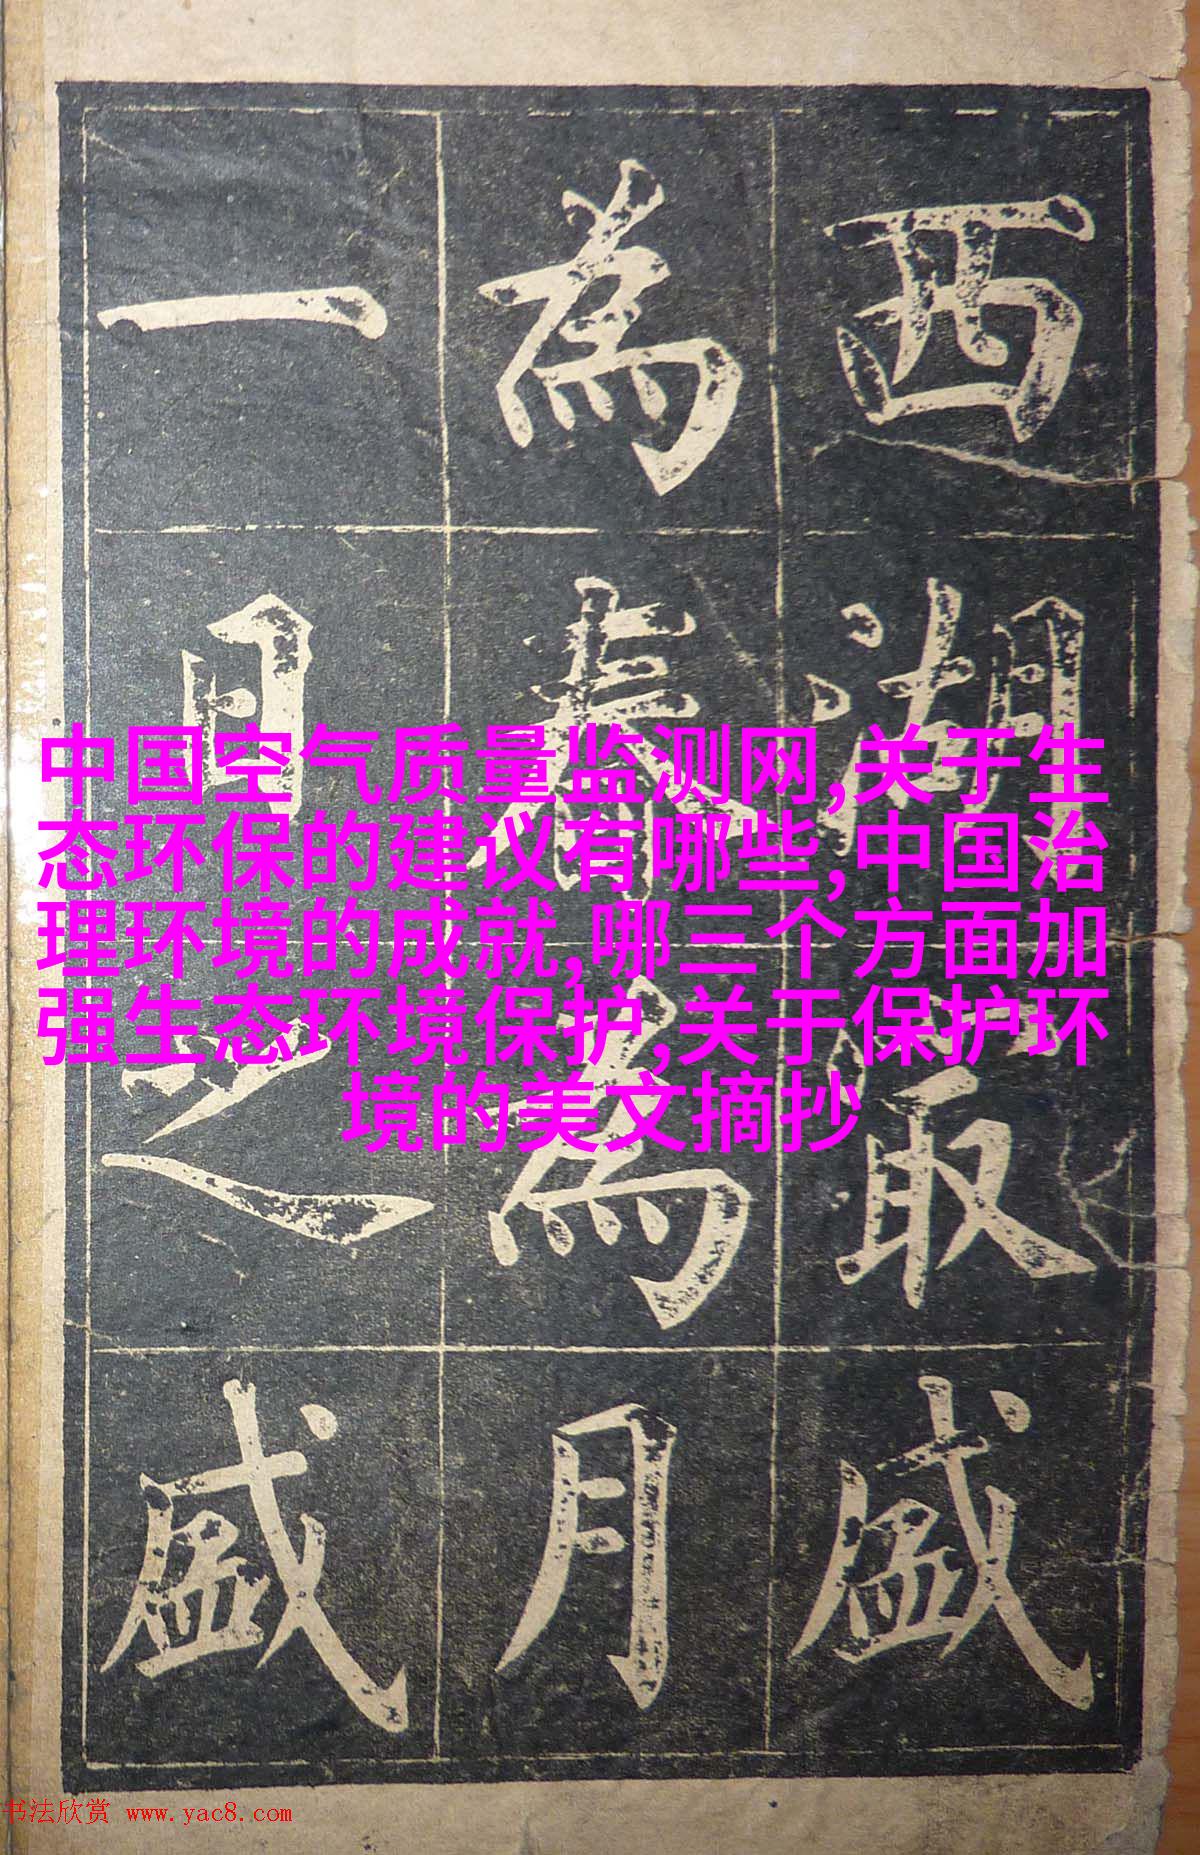 西湖最盛
為春為月
一日之盛
中国空气质量监测网,关于生
态环保的建议有哪些,中国治
理环境的成就,哪三个方面加
强生态环境保护,关于保护环
境的美文摘抄
书法欣赏 www.yac8.com